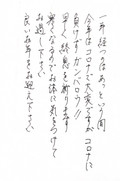 一年経つのはあっという間
今年はコロナで大変ですが コロナに
負けず!ガンバロウ!!
早く終息を祈ります
寒くなるのでお体に気をつけて
お過し下さい
良いお年をお迎え下さい